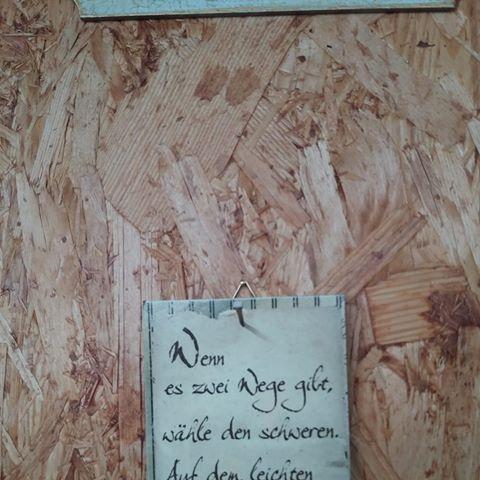 Wenn
es zwei Wege gibt,
wähle den schweren.
Auf dem leichten